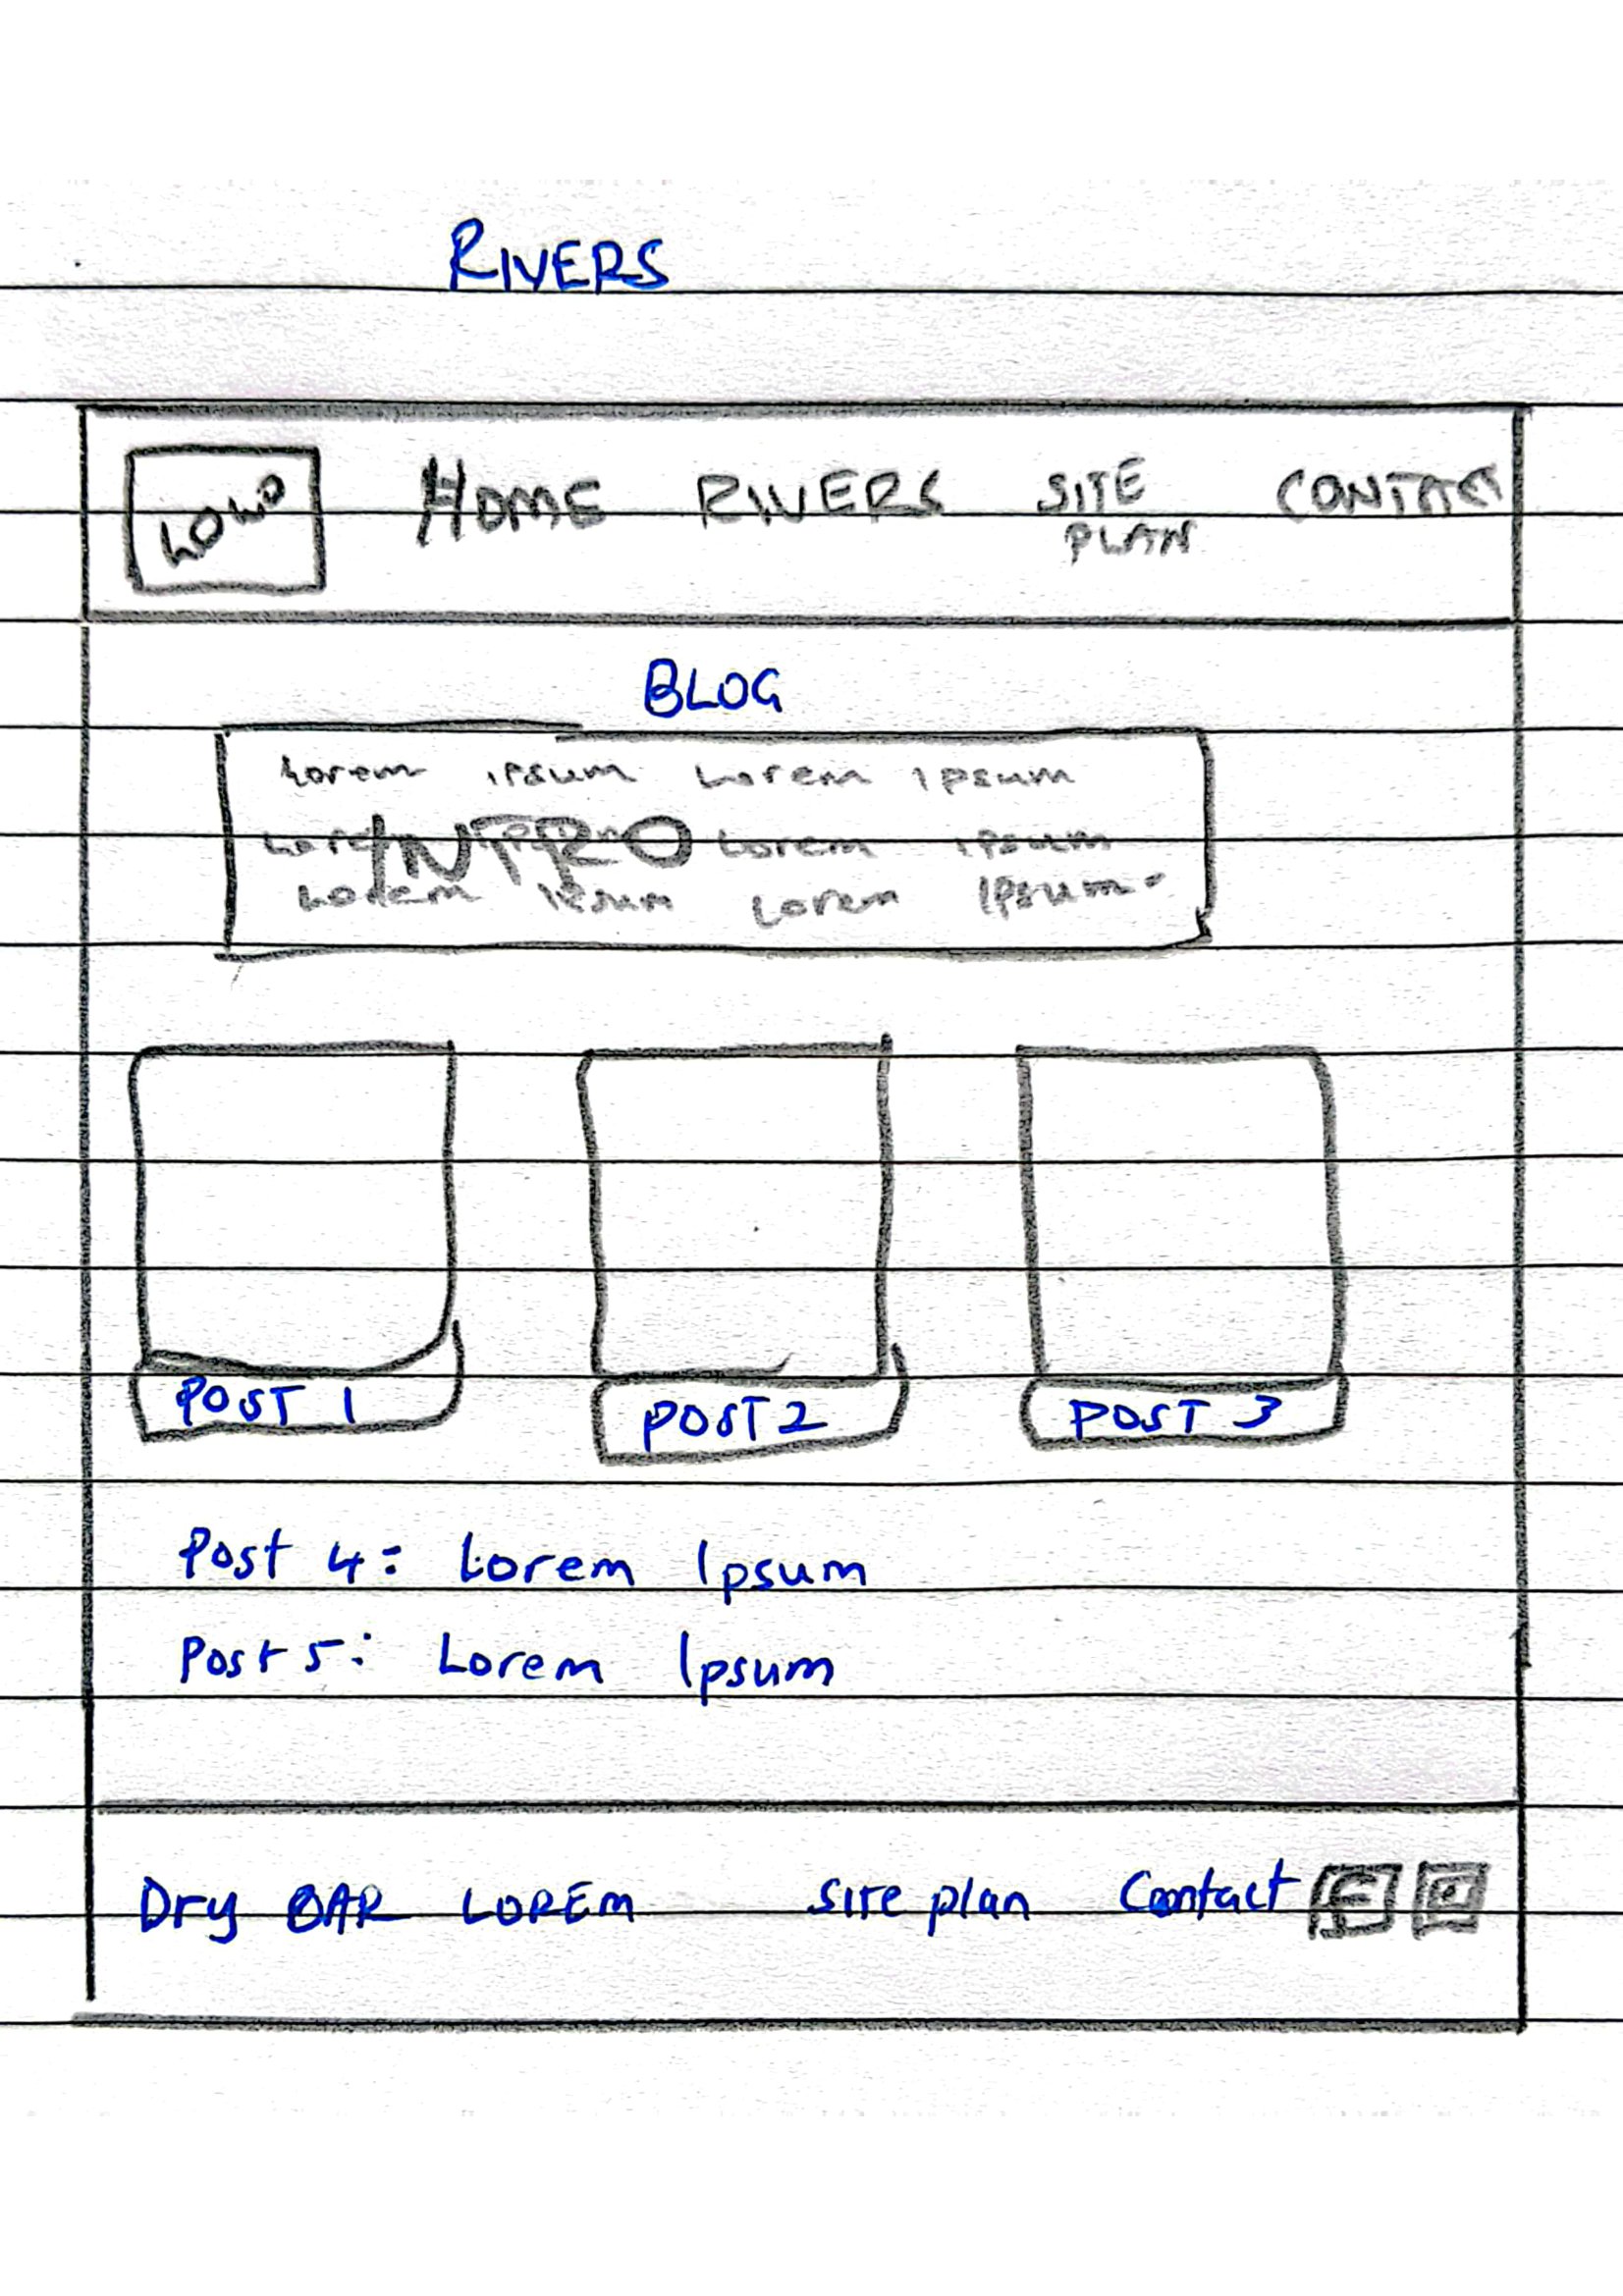 RIVERS
LOGO HOME RIVERS SITE PLAN CONTACT
BLOG
Lorem ipsum Lorem ipsum
INTRO Lorem ipsum
Lorem ipsum Lorem ipsum.
POST 1 POST 2 POST 3
Post 4: Lorem Ipsum
Post 5: Lorem Ipsum
Dry BAR LOREM site plan Contact